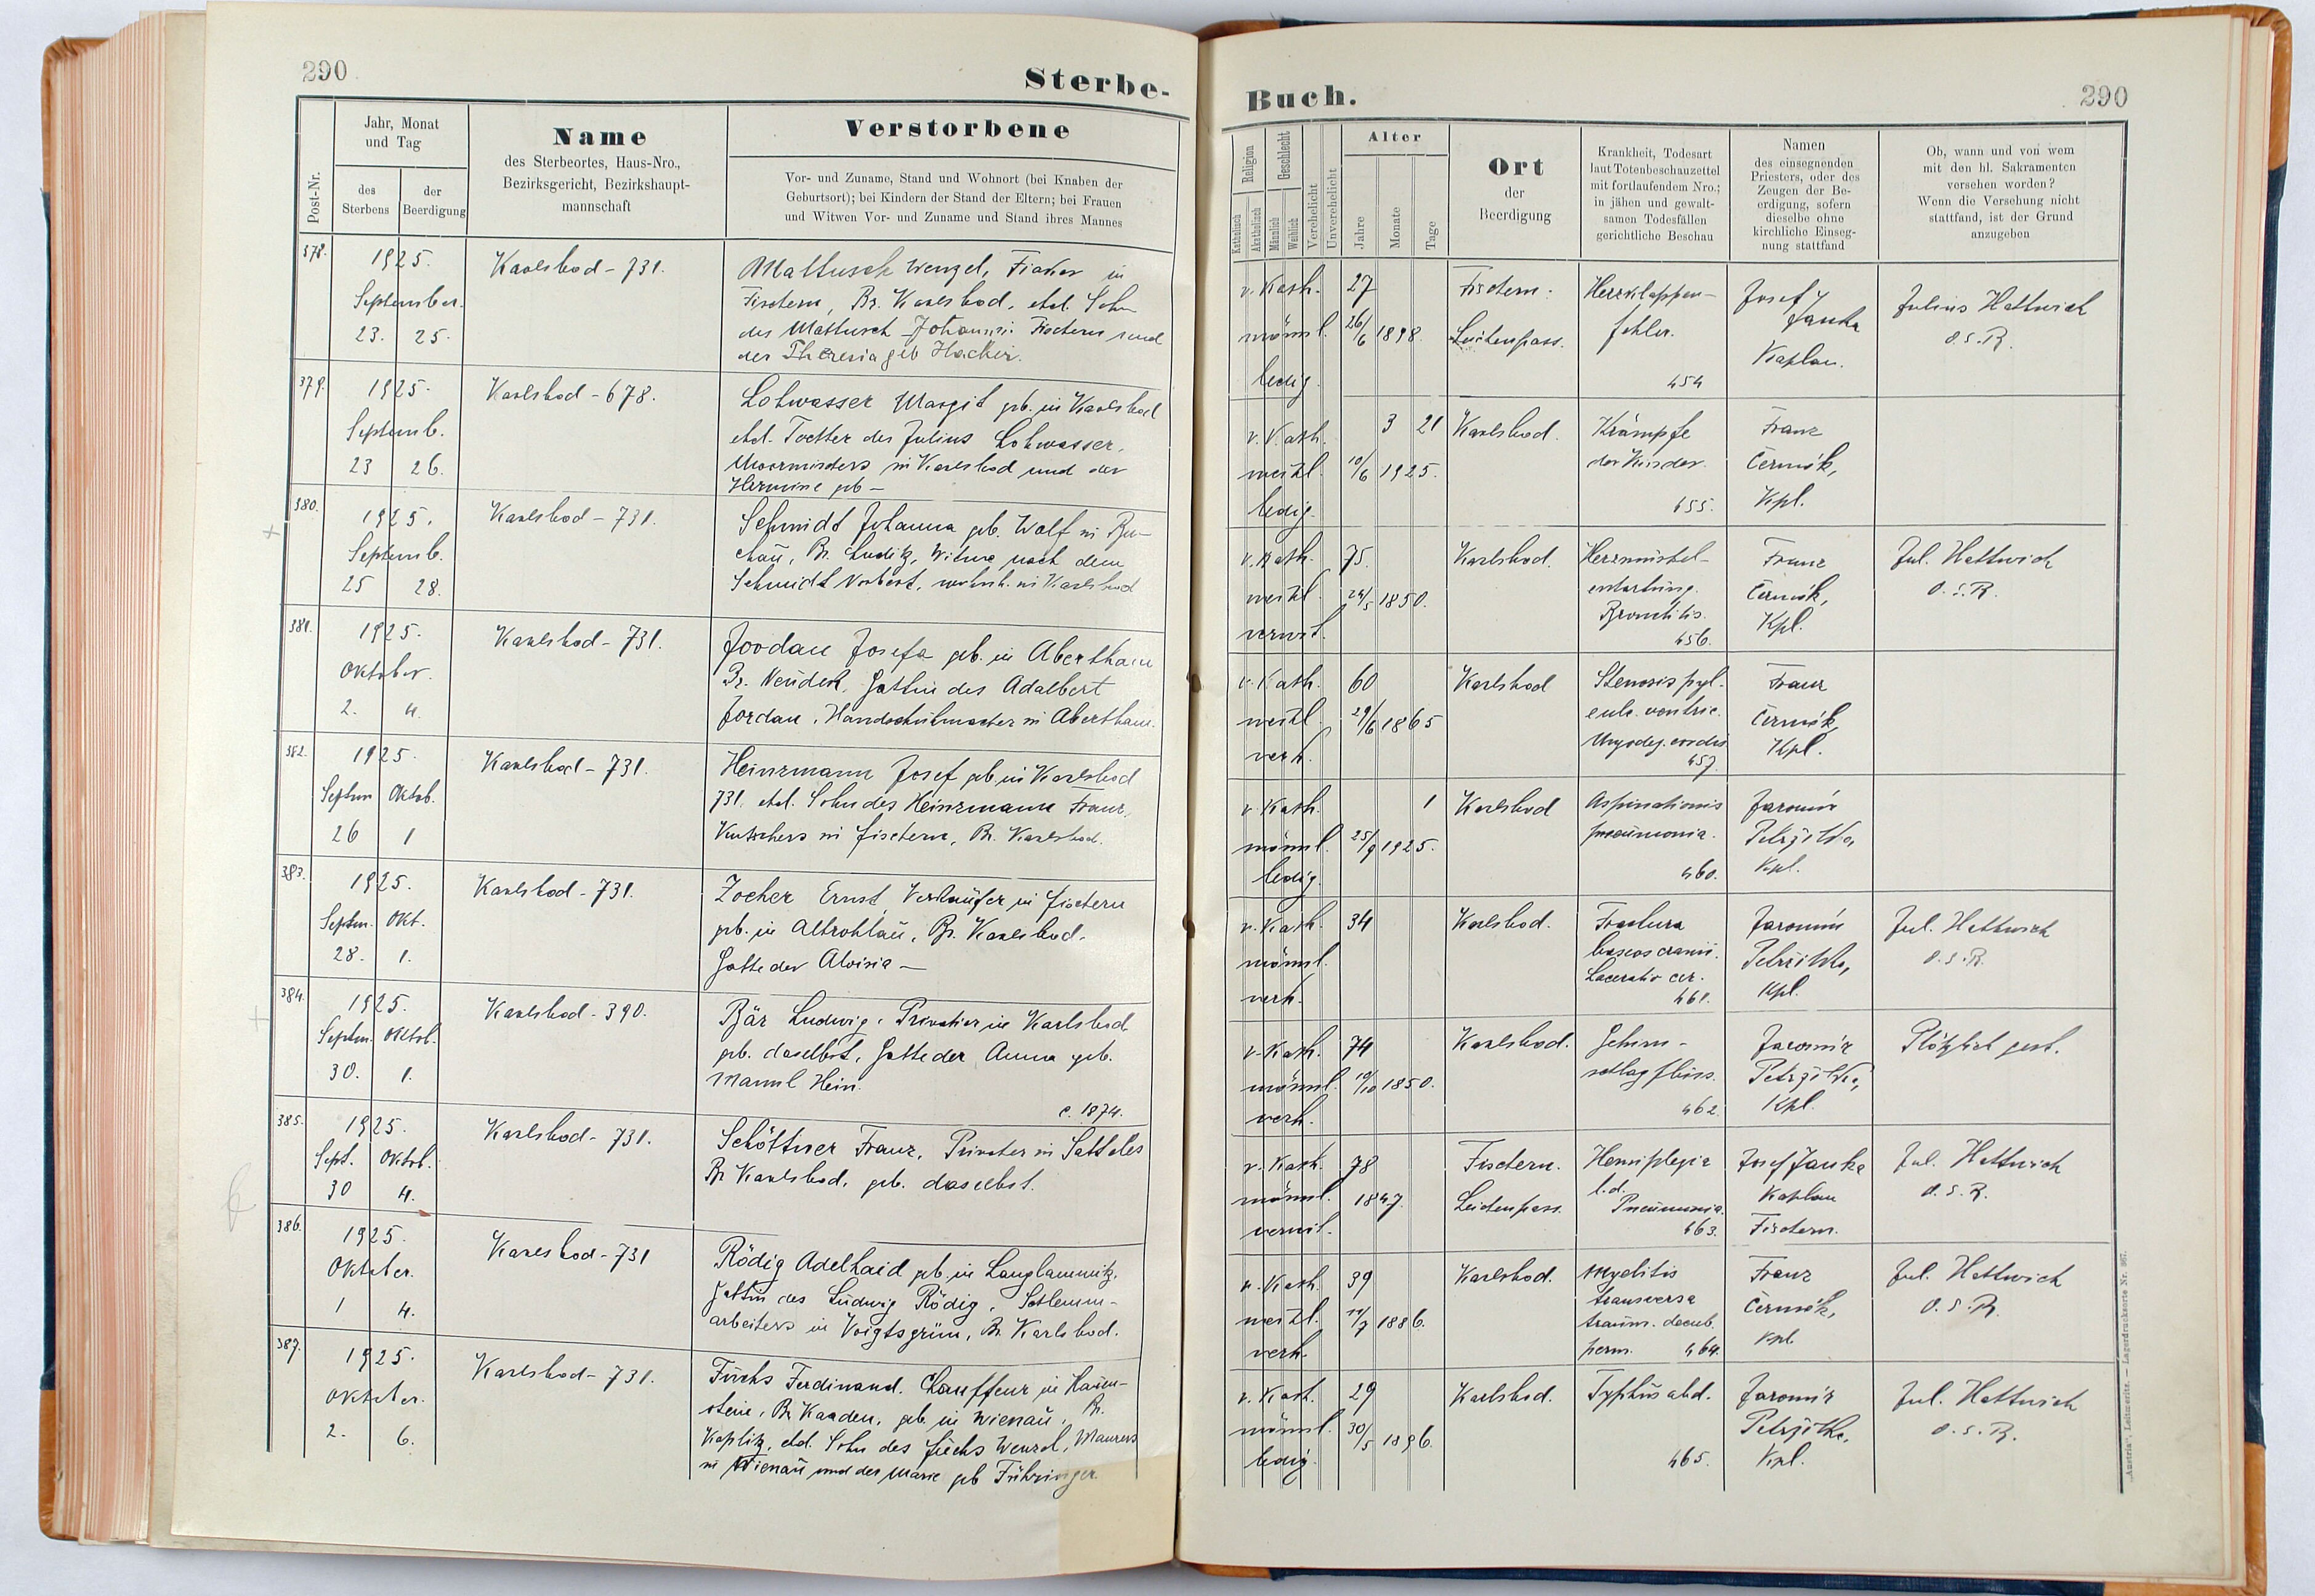 290
Sterbe-
Post-Nr.
Jahr, Monat
und Tag
des
Sterbens
der
Beerdigung
Name
des Sterbeortes, Haus-Nro.,
Bezirksgericht, Bezirkshaupt-
mannschaft
Verstorbene
Vor- und Zuname, Stand und Wohnort (bei Knaben der
Geburtsort); bei Kindern der Stand der Eltern; bei Frauen
und Witwen Vor- und Zuname und Stand ihres Mannes
378.
1925.
September.
23. 25.
Karlsbad - 731.
Mattusch Wenzel, Fiaker in
Fischern, Bz. Karlsbad, ehel. Sohn
des Mattusch Johann in Fischern und
der Theresia geb Hacker.
379.
1925.
Septemb.
23 26.
Karlsbad - 678.
Lohwasser Margit geb. in Karlsbad
ehel. Tochter des Julius Lohwasser,
in Karlsbad und der
Hermine geb -
380.
1925.
Septemb.
25 28.
Karlsbad - 731.
Schmidt Johanna geb. Wolf in Bu-
chau, Bz. Luditz, Witwe nach dem
Schmidt Norbert, wohnh. in Karlsbad
381.
1925.
Oktober.
2. 4.
Karlsbad - 731.
Jordan Josefa geb. in Abertham
Bz. Neudek, Gattin des Adalbert
Jordan, Handschuhmacher in Abertham.
382.
1925.
Septem Oktob.
26 1
Karlsbad - 731.
Heinzmann Josef geb. in Karlsbad
731. ehel. Sohn des Heinzmann Franz,
Kutschers in Fischern, Bz. Karlsbad.
383.
1925.
Septem. Okt.
28. 1.
Karlsbad - 731.
Zocher Ernst, Verkäufer in Fischern
geb. in Altrohlau, Bz. Karlsbad.
Gatte der Aloisia -
384.
1925.
Septem. Oktob.
30. 1.
Karlsbad - 390.
Bär Ludwig, Privatier in Karlsbad
geb. daselbst, Gatte der Anna geb.
Mannl Hein.
c. 1874.
385.
1925.
Sept. Oktob.
30 4.
Karlsbad - 731.
Schöttner Franz, Privater in Satteles
Bz Karlsbad, geb. daselbst.
386.
1925.
Oktober.
1 4.
Karlsbad - 731
Rödig Adelhaid geb. in Langlammitz,
Gattin des Ludwig Rödig, Schlemm-
arbeiters in Voigtsgrün, Bz Karlsbad.
387.
1925.
Oktober.
2. 6.
Karlsbad - 731.
Fuchs Ferdinand, Chauffeur in Hauen-
stein, Bz Kaaden, geb. in Wienau, Bz.
Kaplitz, ehel. Sohn des Fuchs Wenzel, Maurers
in Wienau und der Marie geb Führinger
Buch.
290
Religion
Katholisch
Akatholisch
Geschlecht
Männlich
Weiblich
Verehelicht
Unverehelicht
Alter
Jahre
Monate
Tage
Ort
der
Beerdigung
Krankheit, Todesart
laut Totenbeschauzettel
mit fortlaufendem Nro.;
in jähen und gewalt-
samen Todesfällen
gerichtliche Beschau
Namen
des einsegnenden
Priesters, oder des
Zeugen der Be-
erdigung, sofern
dieselbe ohne
kirchliche Einseg-
nung stattfand
Ob, wann und von wem
mit den hl. Sakramenten
versehen worden?
Wenn die Versehung nicht
stattfand, ist der Grund
anzugeben
r. Kath.
männl.
ledig.
27
26/6 1898.
Fischern.
Leichenpass.
Herzklappen-
fehler.
454
Josef
Janka
Kaplan.
Julius Hattwich
O.S.R.
r. Kath.
weibl.
ledig.
3 21
10/6 1925.
Karlsbad.
Krämpfe
der Kinder.
455.
Franz
Čermák,
Kpl.
r. Kath.
weibl.
verwit.
75.
24/5 1850.
Karlsbad.
Herzmuskel-
entartung.
Bronchitis.
456.
Franz
Čermák,
Kpl.
Jul. Hattwich
O.S.R.
r. Kath.
weibl.
verh.
60
29/6 1865
Karlsbad
Stenosis pyl-
ventric.
Myodeg. cordis
457.
Franz
Čermák,
Kpl.
r. Kath.
männl.
ledig.
1
25/9 1925.
Karlsbad
Aspirationis
pneumonia.
460.
Jaromír
Petržilka,
Kpl.
r. Kath.
männl.
verh.
34
Karlsbad.
Fractura
baseos cranii.
Laceratio cer.
461.
Jaromír
Petržilka,
Kpl.
Jul. Hattwich
O.S.R.
r. Kath.
männl.
verh.
74
10/10 1850.
Karlsbad.
Gehirn-
schlagfluss.
462.
Jaromír
Petržilka,
Kpl.
Plötzlich gest.
r. Kath.
männl.
verwit.
78
1847.
Fischern.
Leichenpass.
Hemiplegia
l.d.
Pneumonia.
463.
Josef Janka
Kaplan
Fischern.
Jul. Hattwich
O.S.R.
r. Kath.
weibl.
verh.
39
11/7 1886.
Karlsbad.
Myelitis
transversa
traum. decub.
perm. 464.
Franz
Čermák,
Kpl
Jul. Hattwich
O.S.R.
r. Kath.
männl.
ledig.
29
30/5 1896.
Karlsbad.
Typhus abd.
465.
Jaromír
Petržilka,
Kpl.
Jul. Hattwich
O.S.R.
„Austria“, Leitmeritz. — Lagerdrucksorte Nr. 367.